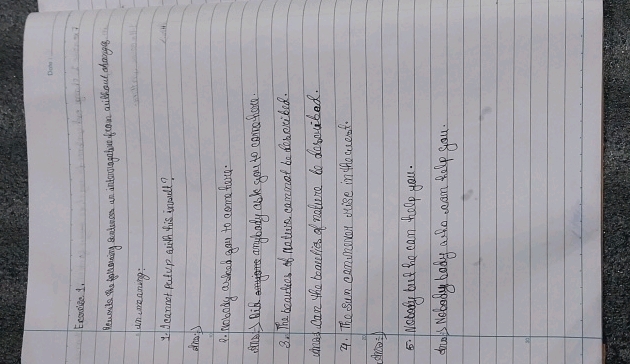 Exercise 1.
Rewrite the following sentences in interrogative from without changes
in meaning:
1. I cannot put up with his insult?
Ans:)
2. Nobody asked you to come here.
Ans:) Did anybody ask you to come here.
3. The beauties of nature cannot be described.
Ans:) Can the beauties of nature be described.
4. The sun can never rise in the west.
Ans:)
5. Nobody but he can help you.
Ans:) Nobody who can help you.